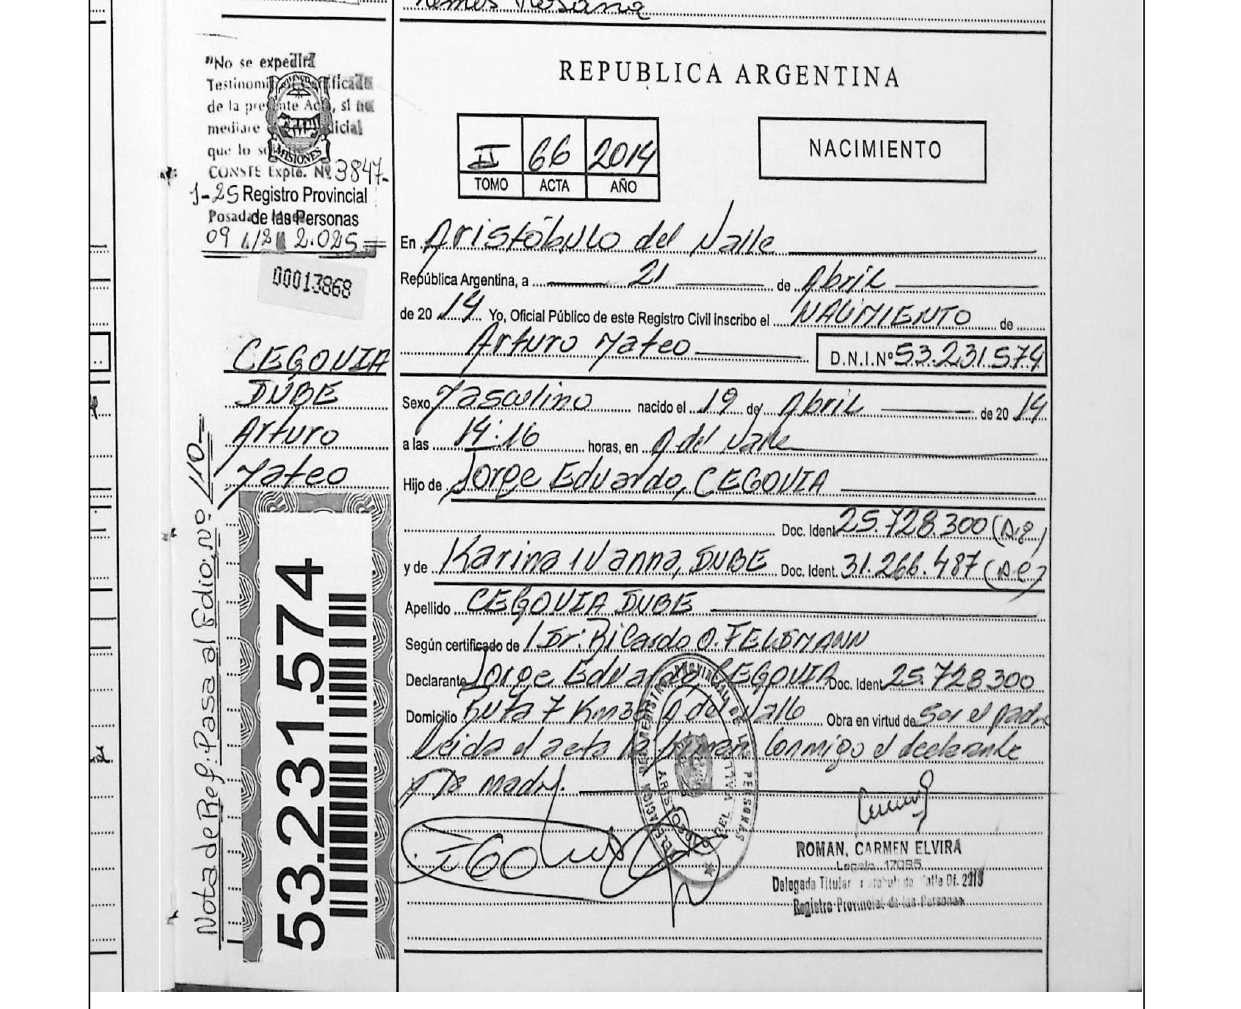 REPUBLICA ARGENTINA
II 66 2014
TOMO ACTA AÑO
NACIMIENTO
"No se expedirá
de la presente Acta, si no
mediare
que lo
MISIONES
CONSTE Expte. Nº 3847-
J-25 Registro Provincial
Posadas de las Personas
09 /12/ 2.025
00013868
CEGOVIA
DUBE
Arturo
Mateo
Nota de Ref.: Pasa al Folio Nº: 110-
53.231.574
En Aristóbulo del Valle
República Argentina, a 21 de Abril
de 2014 Yo, Oficial Público de este Registro Civil inscribo el NACIMIENTO de
Arturo Mateo D.N.I.Nº 53.231.574
Sexo Masculino nacido el 19 de Abril de 2014
a las 14:16 horas, en A. del Valle
Hijo de Jorge Eduardo, CEGOVIA
Doc. Ident. 25.728.300 (A.g)
y de Karina Ivanna, DUBE Doc. Ident. 31.266.487
Apellido CEGOVIA DUBE
Según certificado de Dr: Ricardo O. FELDMANN
Declarante Jorge Eduardo CEGOVIA Doc. Ident. 25.728300
Domicilio Ruta 7 Km3 A del Valle Obra en virtud de Ser el padre
Leida el acta la firman conmigo el declarante
y la madre.
ROMAN, CARMEN ELVIRA
Legajo 17085
Delegada Titular Aristobulo del Valle Of. 2213
Registro Provincial de las Personas